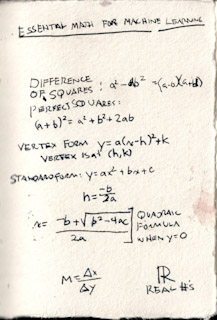 ESSENTIAL MATH FOR MACHINE LEARNING
DIFFERENCE
OF SQUARES: a² - b² = (a-b)(a+b)
PERFECT SQUARES:
(a+b)² = a² + b² + 2ab
VERTEX FORM y = a(x-h)² + k
VERTEX IS AT (h,k)
STANDARD FORM: y = ax² + bx + c
h = -b/2a
x = -b + √b² - 4ac / 2a QUADRATIC FORMULA WHEN y=0
M = Δx/Δy
ℝ
REAL #S